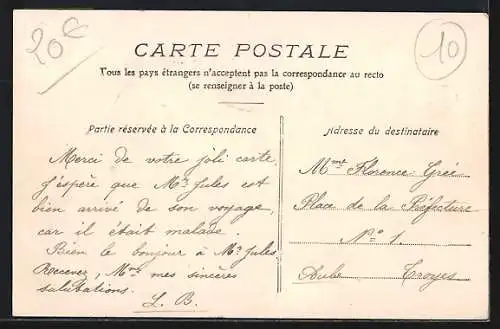 20€
10
CARTE POSTALE
Tous les pays étrangers n'acceptent pas la correspondance au recto
(se renseigner à la poste)
Partie réservée à la Correspondance
Merci de votre joli carte
J'éspère que Mr Jules est
bien arrivé de son voyage,
car il était malade.
Bien le bonjour à Mr Jules
Recevez, Mme mes sincères
salutations.
L. B.
Adresse du destinataire
Mme Florence Grée
Place de la Préfecture
No 1.
Aube Troyes